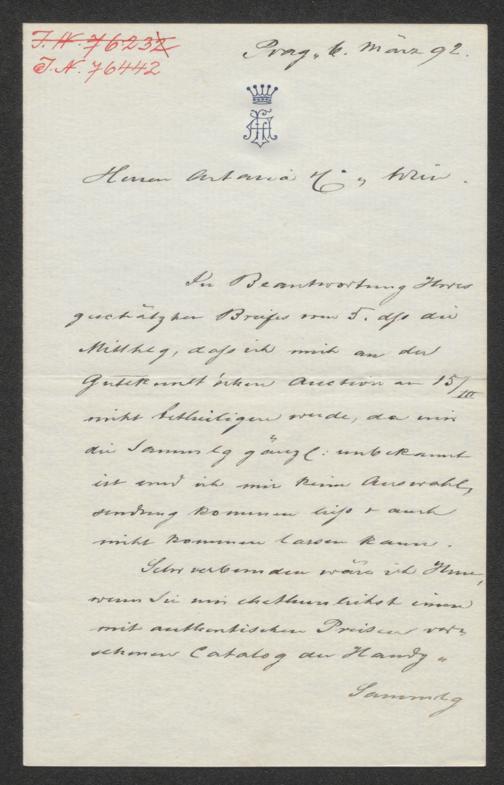 I. N. 76232
I. N. 76442
Prag, 6. März 92.
Herren Artaria & Co., Wien.
In Beantwortung Ihres
geschätzten Briefes vom 5. dſs die
Mitthlg, daſs ich mich an der
Gutekunst'schen Auction am 15/III
nicht betheiligen werde, da mir
die Sammlg gänzl: unbekannt
ist und ich mir keine Auswahl,
sendung kommen ließ & auch
nicht kommen lassen kann.
Sehr verbunden wäre ich Ihnen,
wenn Sie mir ehethunlichst einen
mit authentischen Preisen ver„
sehenen Catalog der Handz„
Sammlg